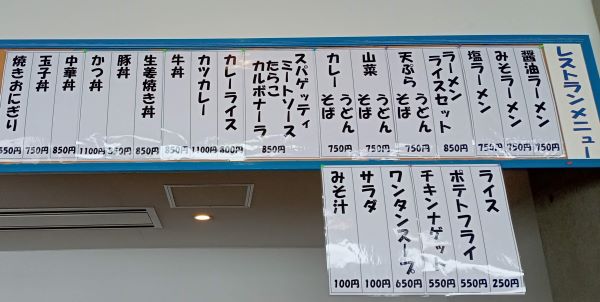 レストランメニュー
醤油ラーメン
750円
みそラーメン
750円
塩ラーメン
750円
ラーメン
ライスセット
850円
天ぷら
うどん
そば
750円
山菜
うどん
そば
750円
カレー
うどん
そば
750円
スパゲッティ
ミートソース
たらこ
カルボナーラ
850円
カレーライス
800円
カツカレー
1100円
牛丼
850円
生姜焼き丼
850円
豚丼
かつ丼
1100円
中華丼
850円
玉子丼
750円
焼きおにぎり
ライス
250円
ポテトフライ
550円
チキンナゲット
550円
ワンタンスープ
650円
サラダ
100円
みそ汁
100円